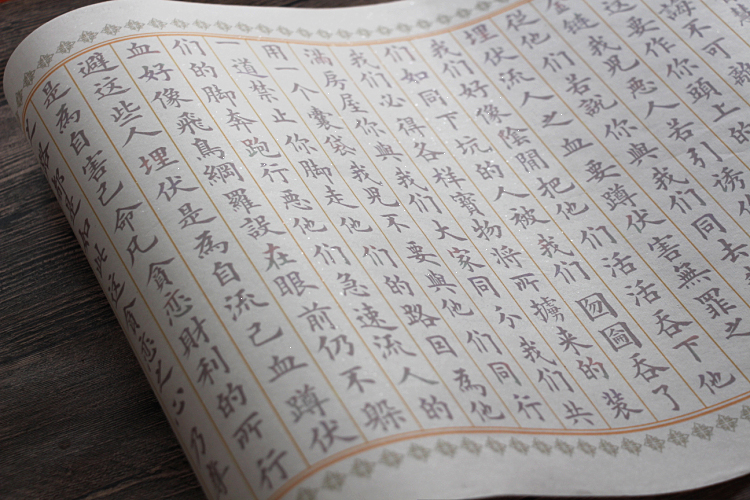 誨不可
這要作你頭上的
金鏈我兒惡人若引誘
從他們若說你與我們同去
埋伏流人之血要蹲伏害無罪之
我們好像陰間把他們活活吞下他
們如同下坑的人被我們囫圇吞了
我們必得各樣寶物將所擄來的裝
滿房屋你與我們大家同分我們共
用一个囊袋我兒不要與他們同行
一道禁止你脚走他們的路因為他
們的脚奔跑行惡他們急速流人的
血好像飛鳥網羅設在眼前仍不躲
避這些人埋伏是為自流己血蹲伏
是為自害己命凡貪戀財利的所行
之路都是如此這貪戀之心乃奪